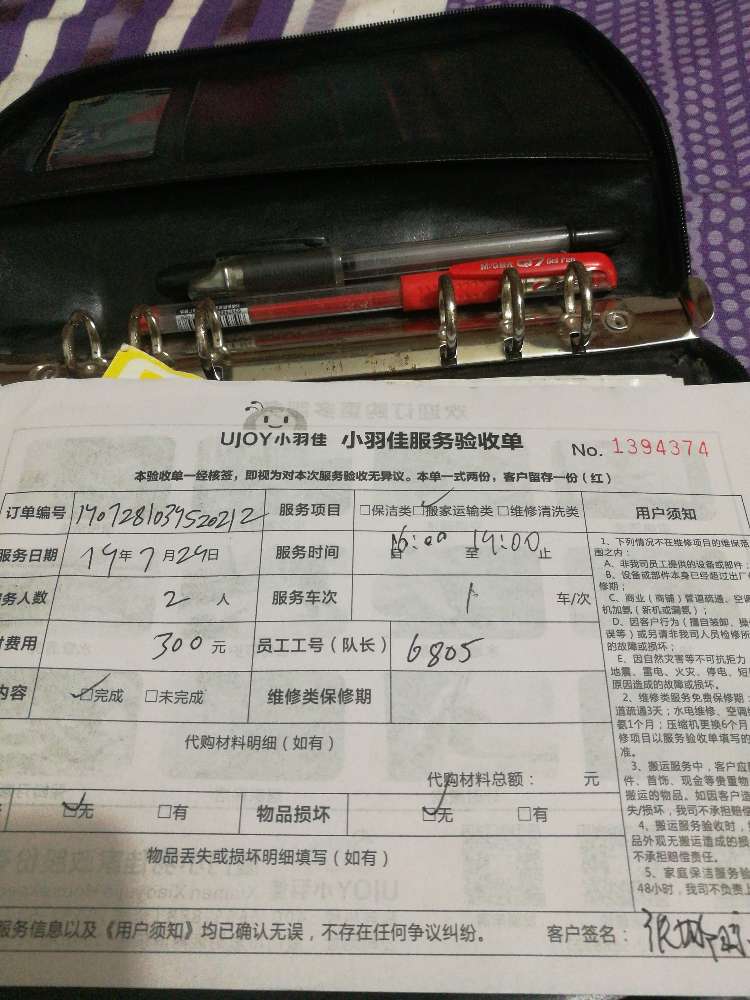 M&G Q7 Gel Pen
UJOY小羽佳 小羽佳服务验收单 No. 1394374
本验收单一经核签，即视为对本次服务验收无异议。本单一式两份，客户留存一份（红）
订单编号 服务项目 □保洁类 □搬家运输类 □维修清洗类 用户须知
服务日期 19年7月29日 服务时间 自16:00至19:00止
务人数 2人 服务车次 1 车/次
付费用 300元 员工工号（队长） 6805
内容 □完成 □未完成 维修类保修期
代购材料明细（如有）
代购材料总额： 元
□无 □有 物品损坏 □无 □有
物品丢失或损坏明细填写（如有）
服务信息以及《用户须知》均已确认无误，不存在任何争议纠纷。 客户签名：
1、下列情况不在维修项目的维保范
围之内：
A、非我司员工提供的设备或部件；
B、设备或部件本身已经超过出厂
修期；
C、商业（商铺）管道疏通、空调
机加氨（新机或漏氨）；
D、因客户行为（擅自装卸、操
误等）或另请非我司人员检修所
的故障或损坏；
E、因自然灾害等不可抗拒力
地震、雷电、火灾、停电、短
原因造成的故障或损坏。
2、维修类服务免费保修期：
道疏通3天；水电维修、空调
氨1个月；压缩机更换6个月
修项目以服务验收单填写的
准。
3、搬运服务中，客户应
件、首饰、现金等贵重物
搬运的物品。如因客户
失/损坏，我司不承担赔偿
4、搬运服务验收时，
品外观无搬运造成的损
不承担赔偿责任。
5、家庭保洁服务验
48小时，我司不负责